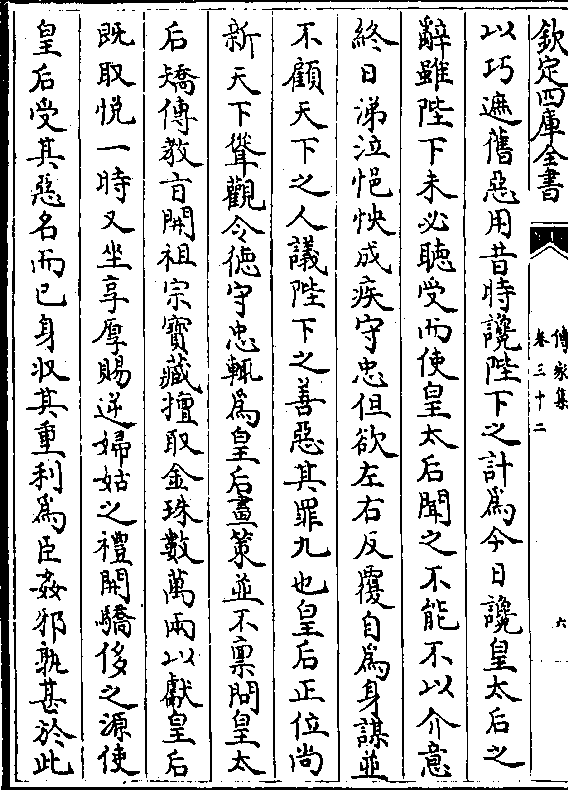 欽定四庫全書
傳家集
卷三十二
六
以巧遮舊惡用昔時讒陛下之計為今日讒皇太后之
辭雖陛下未必聽受而使皇太后聞之不能不以介意
終日涕泣悒怏成疾守忠但欲左右反覆自為身謀並
不顧天下之人議陛下之善惡其罪九也皇后正位尚
新天下聳觀令徳守忠輒為皇后畫策並不禀問皇太
后矯傳教㫖開祖宗寳藏擅取金珠數萬兩以獻皇后
既取悦一時又坐享厚賜逆婦姑之禮開驕侈之源使
皇后受其惡名而已身収其重利為臣姦邪孰甚於此